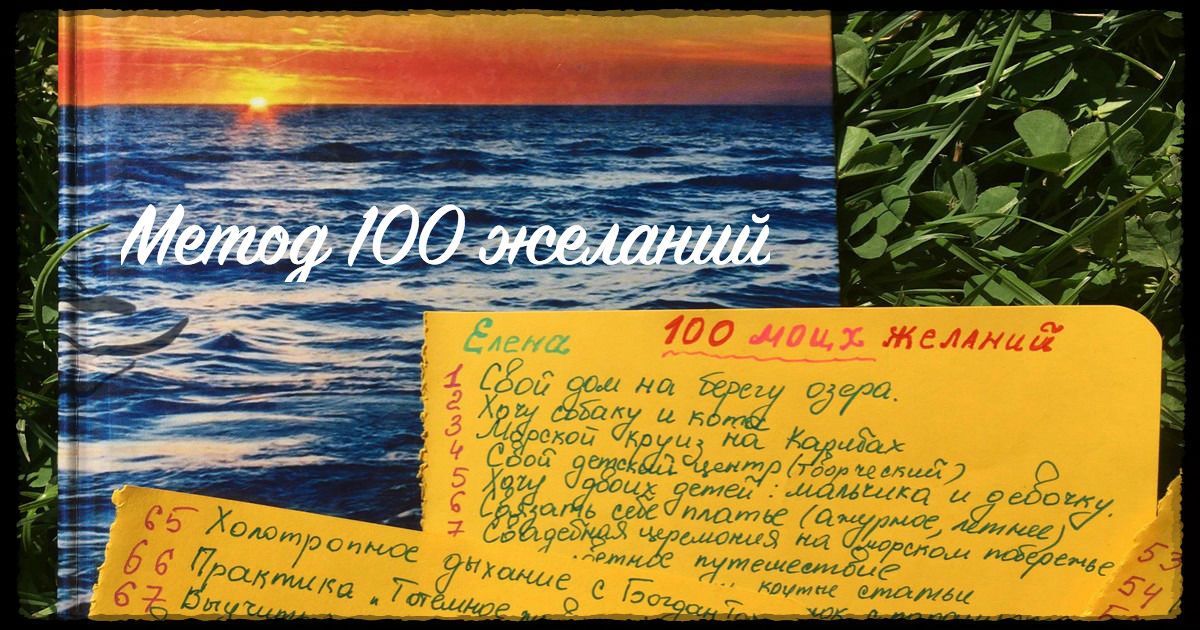 Метод 100 желаний
Елена 100 моих желаний
1 Свой дом на берегу озера.
2 Хочу собаку и кота
3 Морской круиз на Карибах
4 Свой детский центр (творческий)
5 Хочу двоих детей: мальчика и девочку.
6 Связать себе платье (ажурное, летнее)
7 Свадебная церемония на морском побережье
путешествие
крутые статьи
65 Холотропное дыхание с Богдан
66 Практика "Тотемное
67
53
54